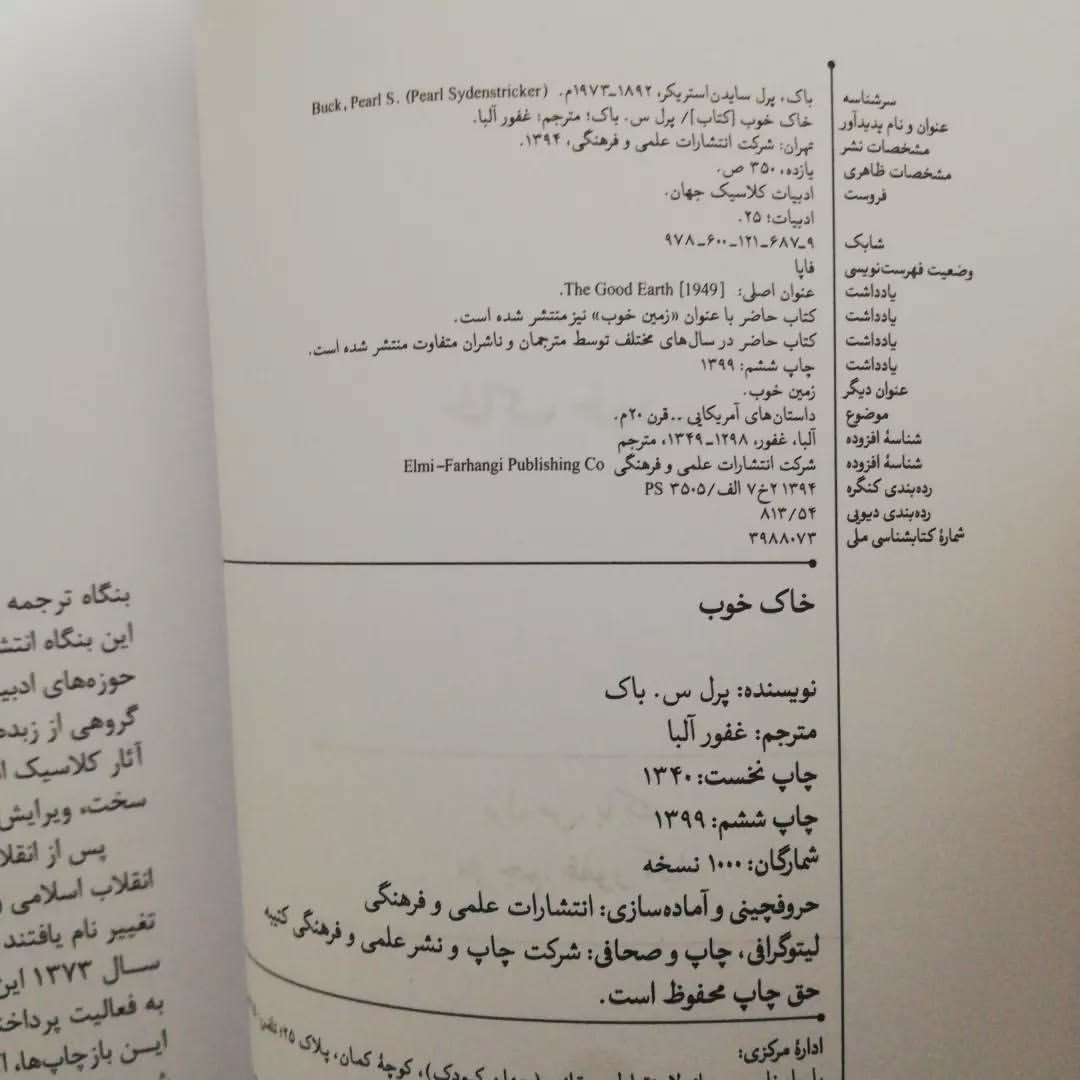 سرشناسه باک، پرل سایدن‌استریکر، ۱۸۹۲ـ۱۹۷۳م. Buck, Pearl S. (Pearl Sydenstricker)
عنوان و نام پدیدآور خاک خوب [کتاب]/ پرل س. باک؛ مترجم: غفور آلبا.
مشخصات نشر تهران: شرکت انتشارات علمی و فرهنگی، ۱۳۹۴.
مشخصات ظاهری یازده، ۳۵۰ ص.
فروست ادبیات کلاسیک جهان.
ادبیات؛ ۲۵.
شابک ۹ـ۶۸۷ـ۱۲۱ـ۶۰۰ـ۹۷۸
وضعیت فهرست‌نویسی فاپا
یادداشت عنوان اصلی: The Good Earth [1949].
یادداشت کتاب حاضر با عنوان «زمین خوب» نیز منتشر شده است.
یادداشت کتاب حاضر در سال‌های مختلف توسط مترجمان و ناشران متفاوت منتشر شده است.
یادداشت چاپ ششم: ۱۳۹۹
عنوان دیگر زمین خوب.
موضوع داستان‌های آمریکایی -- قرن ۲۰م.
شناسهٔ افزوده آلبا، غفور، ۱۲۹۸ـ۱۳۴۹، مترجم
شناسهٔ افزوده شرکت انتشارات علمی و فرهنگی Elmi-Farhangi Publishing Co
رده‌بندی کنگره ۱۳۹۴ ۲خ۷ الف/۳۵۰۵ PS
رده‌بندی دیویی ۸۱۳/۵۴
شمارهٔ کتابشناسی ملی ۳۹۸۸۰۷۳
خاک خوب
نویسنده: پرل س. باک
مترجم: غفور آلبا
چاپ نخست: ۱۳۴۰
چاپ ششم: ۱۳۹۹
شمارگان: ۱۰۰۰ نسخه
حروفچینی و آماده‌سازی: انتشارات علمی و فرهنگی
لیتوگرافی، چاپ و صحافی: شرکت چاپ و نشر علمی و فرهنگی کتیبه
حق چاپ محفوظ است.
ادارهٔ مرکزی:
کوچهٔ کمان، پلاک ۲۵؛ تلفن:
بنگاه ترجمه
این بنگاه
حوزه‌های
گروهی از
آثار کلاسیک
سخت، ویرایش
پس از
انقلاب اسلامی
تغییر نام یافتند
سال ۱۳۷۳
به فعالیت
این بازچاپ‌ها،